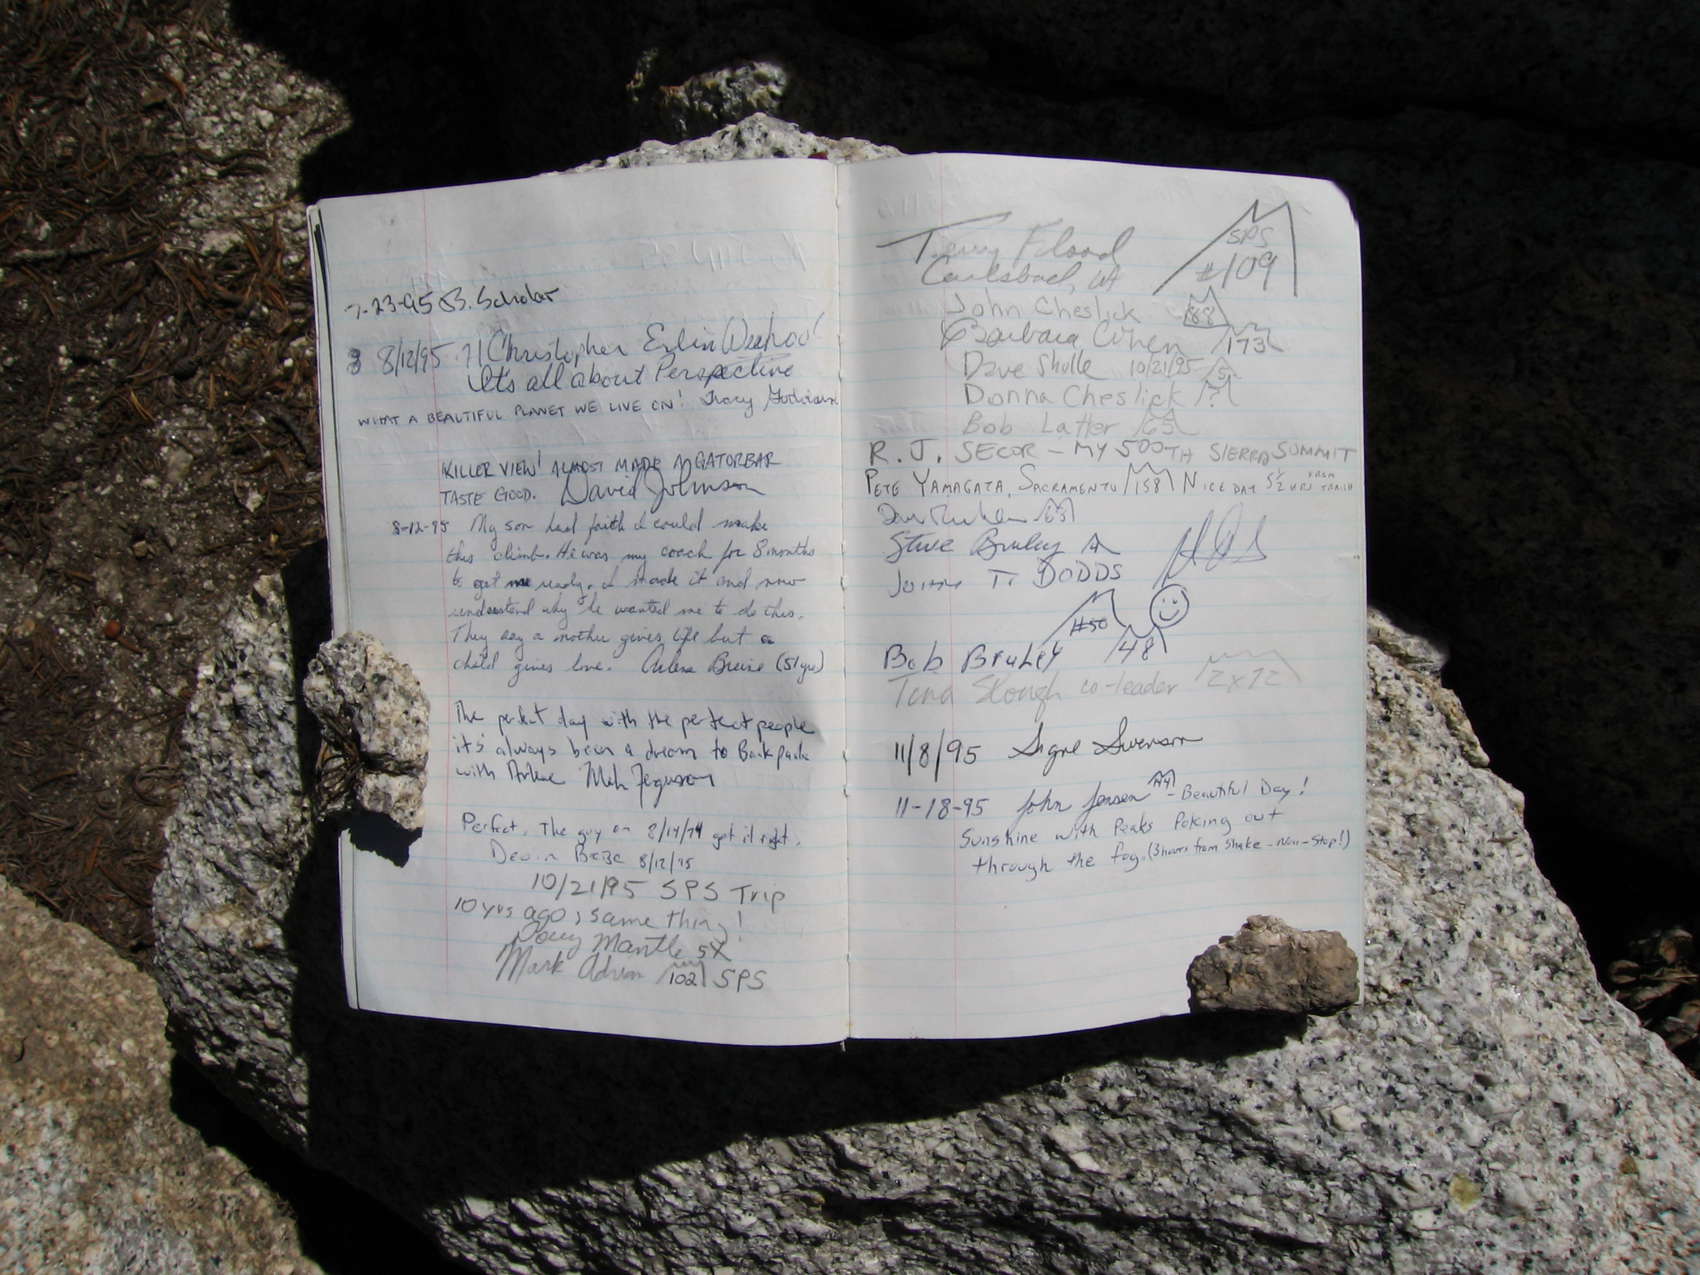 7-23-95 B. Scholar
8/12/95 Christopher Erlin Woohoo!
It's all about Perspective
WHAT A BEAUTIFUL PLANET WE LIVE ON! Tracy
KILLER VIEW! ALMOST MADE A GATORBAR
TASTE GOOD. David Johnson
8-12-95 My son had faith I could make
this climb. He was my coach for 8 months
to get me ready. I made it and now
understand why he wanted me to do this.
They say a mother gives life but a
child gives love. Arlene (51 yrs)
The perfect day with the perfect people
it's always been a dream to Backpack
with Arlene Ferguson
Perfect. The guy on 8/14/94 got it right.
Devin 8/12/95
10/21/95 SPS Trip
10 yrs ago, same thing!
Doug Mantle 5X
Mark Adrian 102 SPS
Terry Flood SPS
Carlsbad, CA #109
John Cheslick 88
Barbara Cohen 173
Dave Shulle 10/21/95
Donna Cheslick ?
Bob Latter 65
R. J. SECOR - MY 500TH SIERRA SUMMIT
PETE YAMAGATA, SACRAMENTO 158 NICE DAY 5½ HRS FROM TRAIL
Steve Bruley
DODDS
#50
Bob Bruley 48
Tina Stough co-leader 2x72
11/8/95 Signe Swenson
11-18-95 John Jensen - Beautiful Day!
Sunshine with Peaks Poking out
through the fog. (3 hours from Shake - non-stop!)